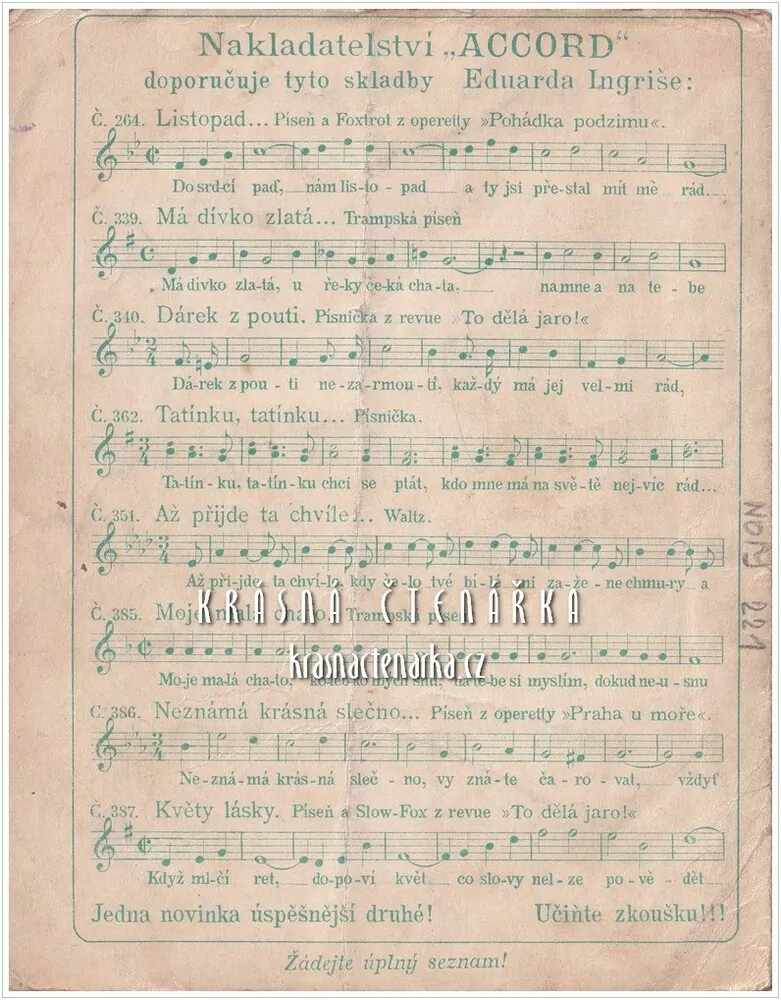 Nakladatelství „ACCORD“
doporučuje tyto skladby Eduarda Ingriše:
Č. 264. Listopad... Píseň a Foxtrot z operetty »Pohádka podzimu«.
Do srd-cí pad', nám lis-to-pad a ty jsi pře-stal mít mě rád.
Č. 339. Má dívko zlatá... Trampská píseň
Má dívko zla-tá, u ře-ky če-ká cha-ta, na mne a na te-be
Č. 340. Dárek z pouti. Písnička z revue »To dělá jaro!«
Dá-rek z pou-ti ne-za-rmou-tí, kaž-dý má jej vel-mi rád,
Č. 362. Tatínku, tatínku... Písnička.
Ta-tín-ku, ta-tín-ku chci se ptát, kdo mne má na svě-tě nej-víc rád...
Č. 351. Až přijde ta chvíle... Waltz.
Až při-jde ta chví-le, kdy če-lo tvé bí-lé mi za-že-ne chmu-ry a
KRÁSNÁ ČTENÁŘKA
Č. 385. Moje malá chato. Trampská píseň
krasnactenarka.cz
Mo-je ma-lá cha-to, ko-léb-ko mých snů, na te-be si myslím, dokud ne-u-snu
Č. 386. Neznámá krásná slečno... Píseň z operetty »Praha u moře«.
Ne-zná-má krás-ná sleč-no, vy zná-te ča-ro-vat, vždyť
Č. 387. Květy lásky. Píseň a Slow-Fox z revue »To dělá jaro!«
Když ml-čí ret, do-po-ví květ co slo-vy nel-ze po-vě-dět
Jedna novinka úspěšnější druhé! Učiňte zkoušku!!!
Žádejte úplný seznam!
NOTY 221